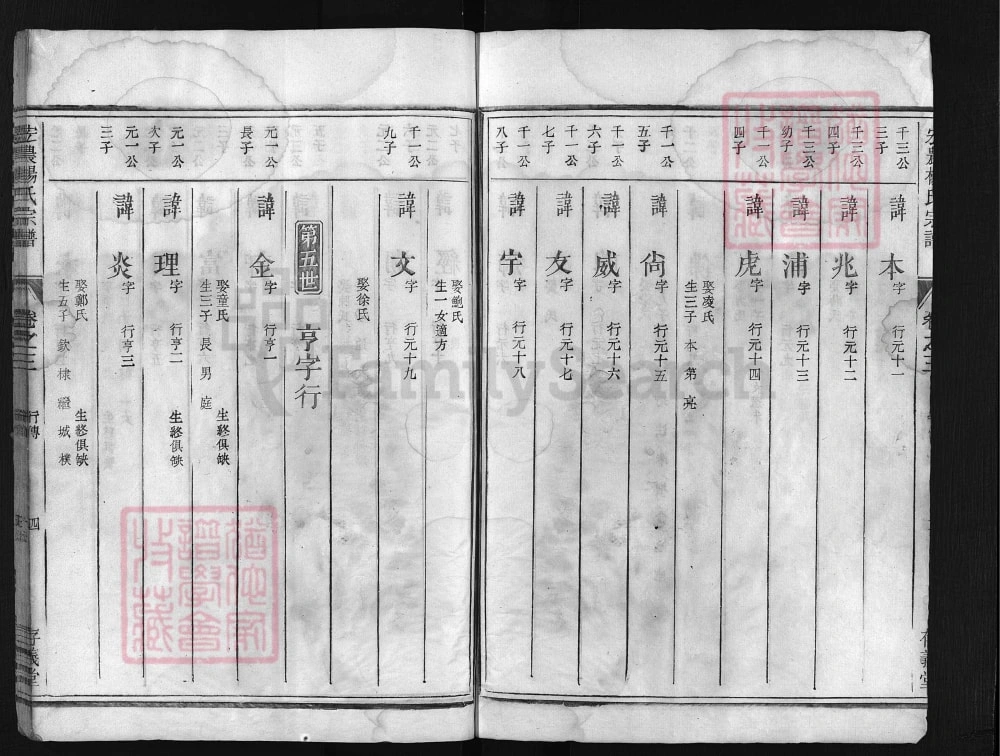 千三公
三子
諱本字 行元十一
千三公
四子
諱兆字 行元十二
千三公
幼子
諱浦字 行元十三
千一公
四子
諱虎字 行元十四
娶凌氏
生三子 本 第 亮
千一公
五子
諱尙字 行元十五
千一公
六子
諱威字 行元十六
千一公
七子
諱友字 行元十七
千一公
八子
諱宇字 行元十八
娶鮑氏
生一女適方
千一公
九子
諱文字 行元十九
娶徐氏
第五世 亨字行
元一公
長子
諱金字 行亨一
娶童氏 生終俱缺
生三子 長 男 庭
元一公
次子
諱理字 行亨二 生終俱缺
元一公
三子
諱炎字 行亨三
娶鄭氏 生終俱缺
生五子 欽 棣 繼 城 樸
宏農楊氏宗譜 卷之三 行傳 四 存義堂
FamilySearch